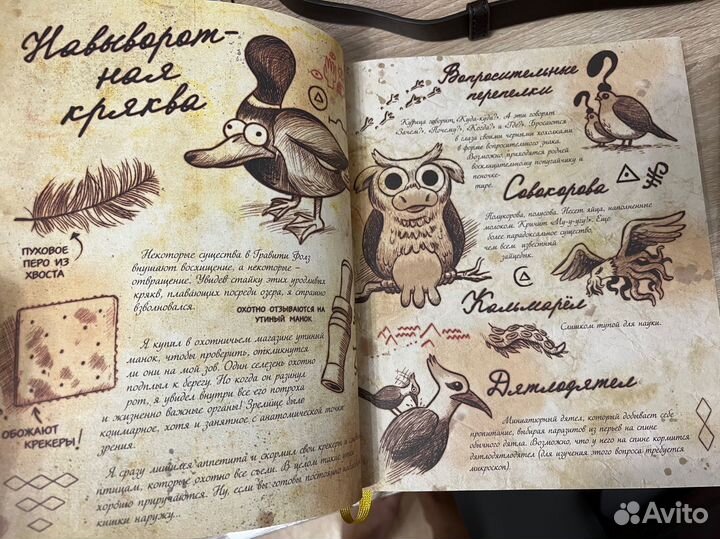 Навыворот-
ная
кряква
ПУХОВОЕ
ПЕРО ИЗ
ХВОСТА
Некоторые существа в Гравити Фолз
внушают восхищение, а некоторые –
отвращение. Увидев стайку этих уродливых
крякв, плавающих посреди озера, я страшно
взволновался.
ОХОТНО ОТЗЫВАЮТСЯ НА
УТИНЫЙ МАНОК
Я купил в охотничьем магазине утиный
манок, чтобы проверить, откликнутся
ли они на мой зов. Один селезень охотно
подплыл к берегу. Но когда он разинул
рот, я увидел внутри все его потроха
и жизненно важные органы! Зрелище было
кошмарное, хотя и занятное с анатомической точки
зрения.
ОБОЖАЮТ КРЕКЕРЫ!
Я сразу лишился аппетита и скормил свои крекеры
птицам, которые охотно все съели. В целом такие утки
хорошо приручаются. Ну, если вы готовы постоянно
кишки наружу...
Вопросительные
перепелки
Курица говорит «Куда-куда?». А эти говорят
«Зачем?», «Почему?», «Когда?» и «Где?». Бросаются
в глаза своими черными хохолками
в форме вопросительного знака.
Возможно приходятся родней
восклицательному попугайчику и
пеночке-
тире.
Совокорова
Полукорова, полусова. Несет яйца, наполненные
молоком. Кричит «Му-у-угу!» Еще
более парадоксальное существо,
чем всем известный
зайцебык.
Кальмарёл
Слишком тупой для науки.
Дятлодятел
Миниатюрный дятел, который добывает себе
пропитание, выбирая паразитов из перьев на спине
обычного дятла. Возможно, что у него на спине кормится
дятлодятлодятел (для изучения этого вопроса требуется
микроскоп).
Avito